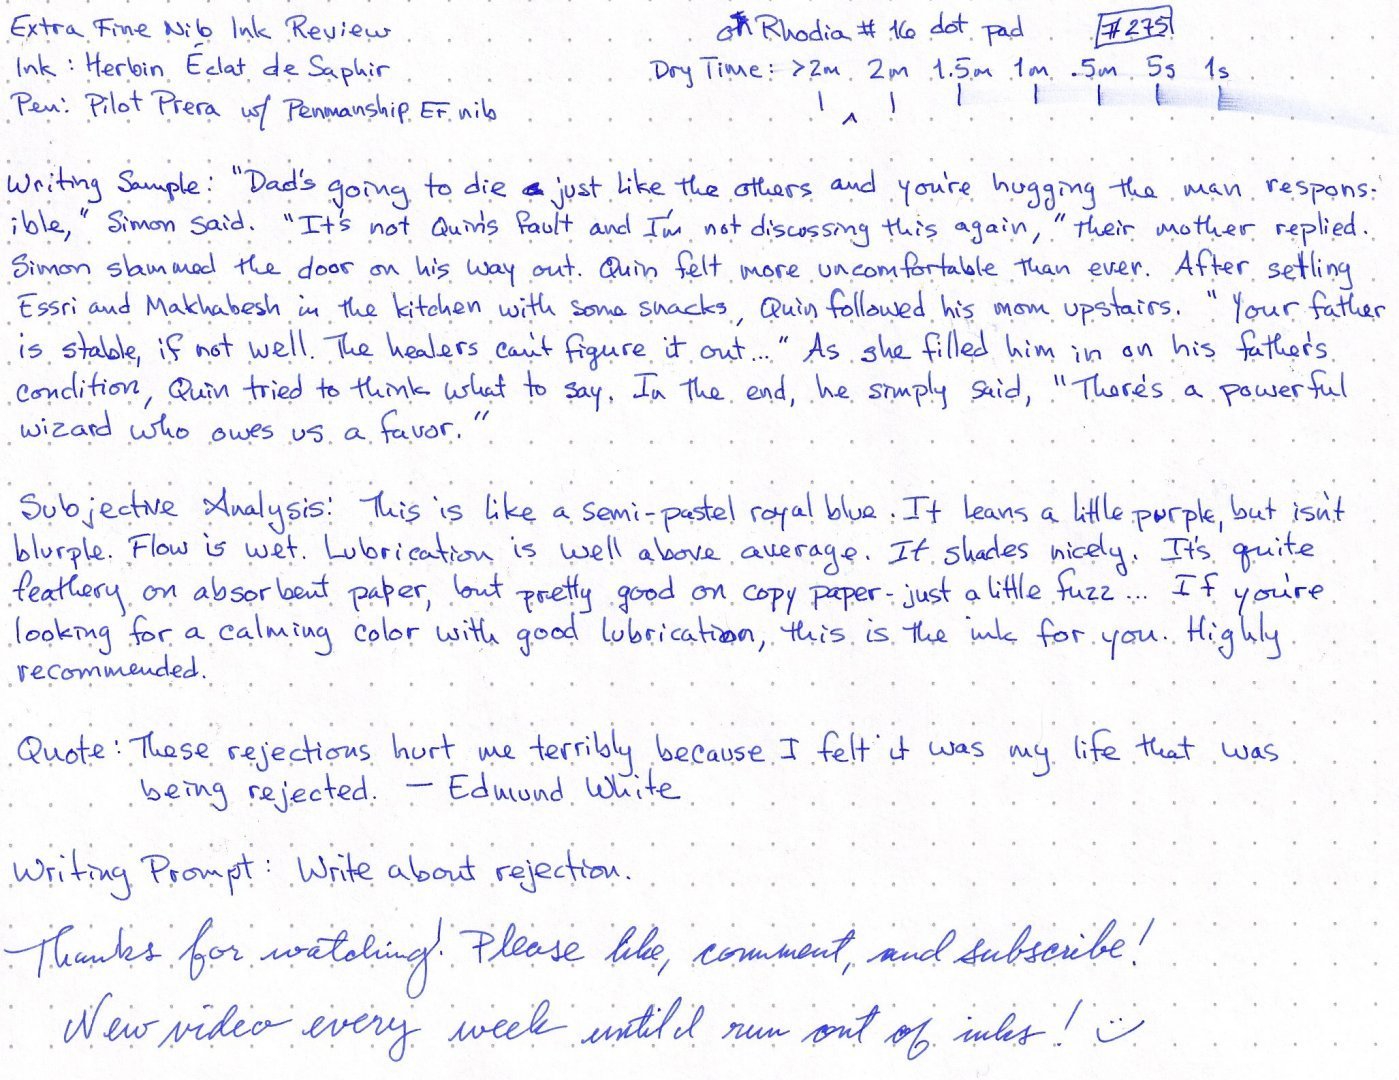 Extra Fine Nib Ink Review on Rhodia # 16 dot pad #275
Ink: Herbin Éclat de Saphir Dry Time: >2m 2m 1.5m 1m .5m 5s 1s
Pen: Pilot Prera w/ Penmanship EF nib ^
Writing Sample: "Dad's going to die just like the others and you're hugging the man respons-
ible," Simon said. "It's not Quin's fault and I'm not discussing this again," their mother replied.
Simon slammed the door on his way out. Quin felt more uncomfortable than ever. After setling
Essri and Makhabesh in the kitchen with some snacks, Quin followed his mom upstairs. "Your father
is stable, if not well. The healers can't figure it out..." As she filled him in on his father's
condition, Quin tried to think what to say. In the end, he simply said, "There's a powerful
wizard who owes us a favor."
Subjective Analysis: This is like a semi-pastel royal blue. It leans a little purple, but isn't
blurple. Flow is wet. Lubrication is well above average. It shades nicely. It's quite
feathery on absorbent paper, but pretty good on copy paper - just a little fuzz... If you're
looking for a calming color with good lubrication, this is the ink for you. Highly
recommended.
Quote: These rejections hurt me terribly because I felt it was my life that was
being rejected. — Edmund White
Writing Prompt: Write about rejection.
Thanks for watching! Please like, comment, and subscribe!
New video every week until I run out of inks! :)